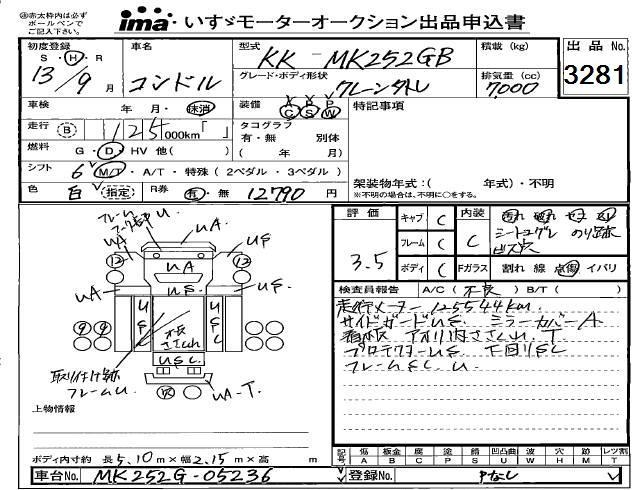 ※赤太枠内は必ず
ボールペンで
ご記入下さい。
ima いすゞモーターオークション出品申込書
初度登録 車名 型式 積載 (kg) 出品No.
S・H・R 13/9月 コンドル KK-MK252GB 3281
グレード・ボディ形状 クレーン 排気量 (cc) 7,000
車検 年 月・抹消 装備 A P P C S W 特記事項
走行 B 125,000km「 」 タコグラフ 有・無 別体
燃料 G・D・HV 他( ) ( 年 月)
シフト 6 M/T・A/T・特殊 (2ペダル・3ペダル)
色 白 指定 R券 有・無 12790円
架装物年式:( 年式)・不明
※不明の場合は、不明に○をする。
評価 3.5
キャブ C
フレーム C
ボディ C
内装 C
シートコゲ
Fガラス 割れ 線 点傷 イバリ
検査員報告 A/C (不良) B/T ( )
走行メーター 125544km
サイドガードUS ミラーカバーA
プロテクターUS 下回りSC
フレームSC U
フレーム
UA
US
UA
UA
US
US
UA
US
12
12
9 9
USC
USC
不良
取り付け跡
フレームU
UA-T
上物情報
ボディ内寸約 長5.10m×幅2.15m×高 m
記号 傷A 板金B 腐C 塗P 錆S 凹凸曲U 波W 穴H 跡M レツ割T
車台No. MK252G-05236 登録No. Pなし